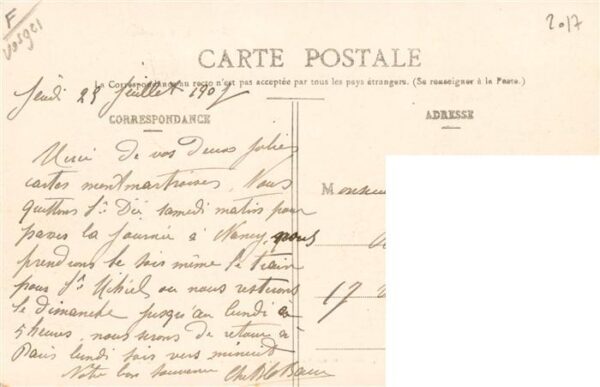 F
Vosges
2017
CARTE POSTALE
La Correspondance au recto n'est pas acceptée par tous les pays étrangers. (Se renseigner à la Poste.)
Jeudi 25 Juillet 1907
CORRESPONDANCE
ADRESSE
Merci de vos deux jolies
cartes montmartroises. Nous
quittons St Dié samedi matin pour
passer la journée à Nancy, nous
prendrons le soir même le train
pour St Mihiel où nous resterons
le dimanche jusqu'au lundi à
5 heures, nous serons de retour à
Paris lundi soir vers minuit
Notre bon souvenir
Monsieur
17